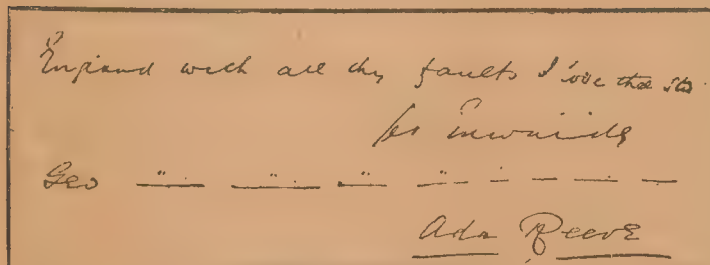 England with all thy faults I love thee still
Yrs
Geo " " " "
Ada Reeve